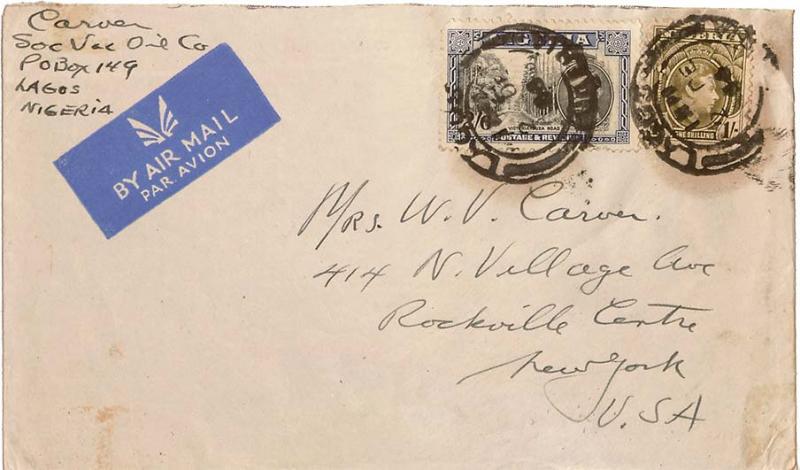 Carver
Soc Vac Oil Co
PO Box 149
LAGOS
NIGERIA
BY AIR MAIL
PAR AVION
2/6
VICTORIA-BUEA ROAD
POSTAGE & REVENUE
ONE SHILLING
1/-
Mrs. W. V. Carver.
414 N. Village Ave
Rockville Centre
New York
U.S.A